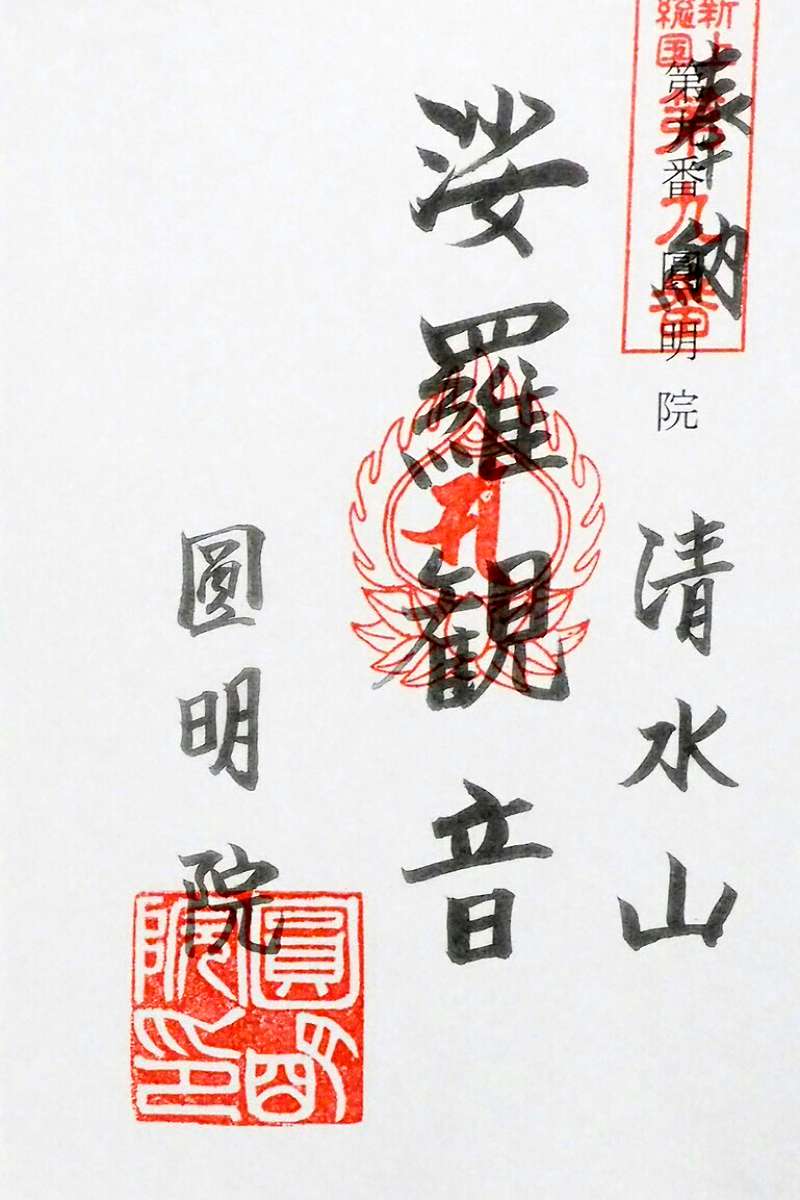 新上
総国
第九番
奉納
第九番 圓明院
清水山
娑羅観音
圓明院
圓明
院印